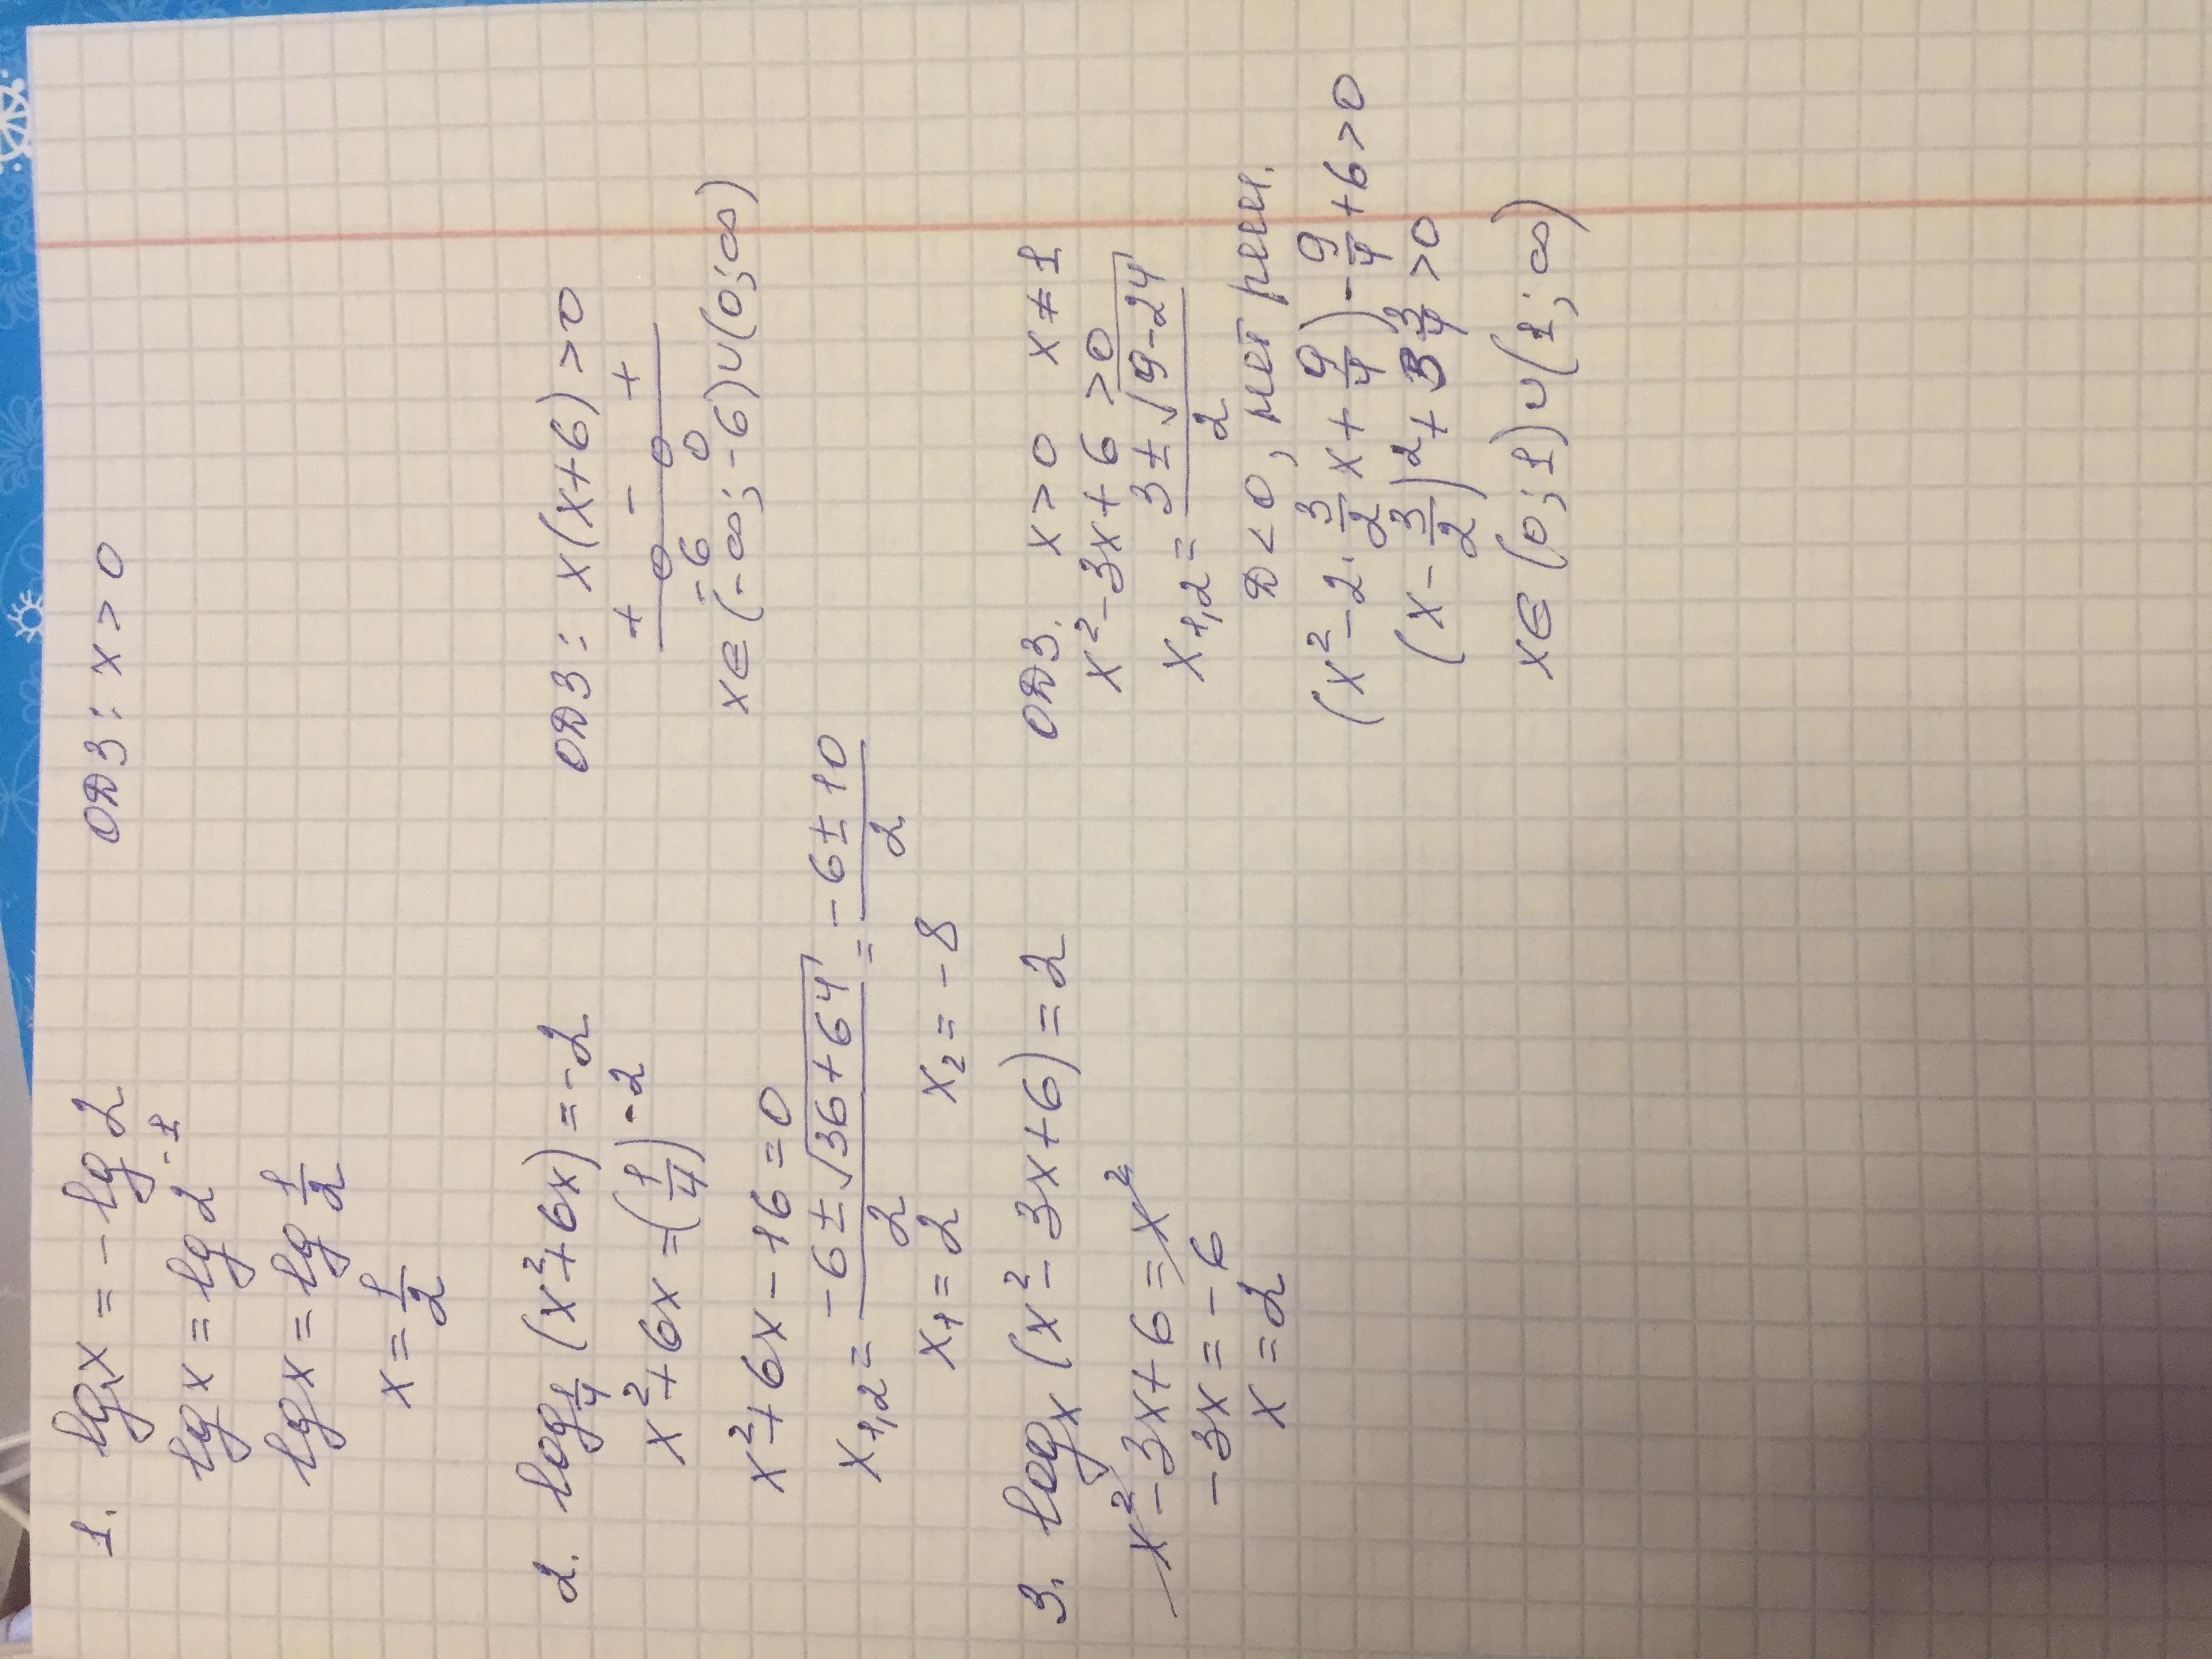 1. lg x = - lg 2 ОДЗ: x > 0
lg x = lg 2⁻¹
lg x = lg 1/2
x = 1/2
2. log_{1/4} (x² + 6x) = -2 ОДЗ: x(x+6) > 0
x² + 6x = (1/4)⁻² + - +
-6 0
x² + 6x - 16 = 0 x ∈ (-∞; -6) ∪ (0; ∞)
x₁,₂ = (-6 ± √(36+64))/2 = (-6 ± 10)/2
x₁ = 2 x₂ = -8
3. log_x (x² - 3x + 6) = 2 ОДЗ. x > 0 x ≠ 1
x² - 3x + 6 = x² x² - 3x + 6 > 0
-3x = -6 x₁,₂ = (3 ± √(9-24))/2
x = 2 D < 0, нет реш.
(x² - 2·3/2 x + 9/4) - 9/4 + 6 > 0
(x - 3/2)² + 3 3/4 > 0
x ∈ (0; 1) ∪ (1; ∞)